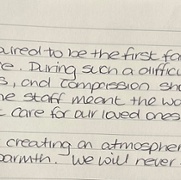 aired to be the first fa
re. During such a difficu
s, and compassion sho
he staff meant the wo
t care for our loved ones
creating an atmospher
warmth. We will never